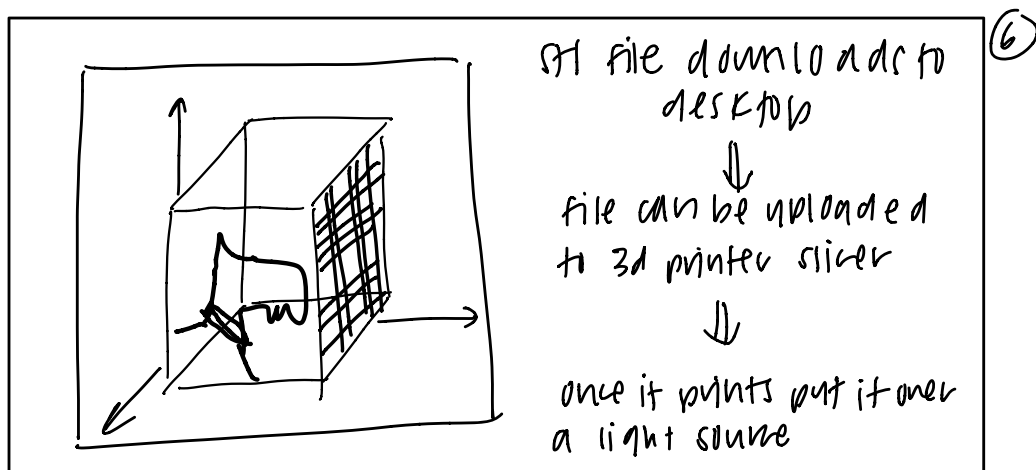 6
stl file downloads to
desktop
⇓
file can be uploaded
to 3d printer slicer
⇓
once it prints put it over
a light source